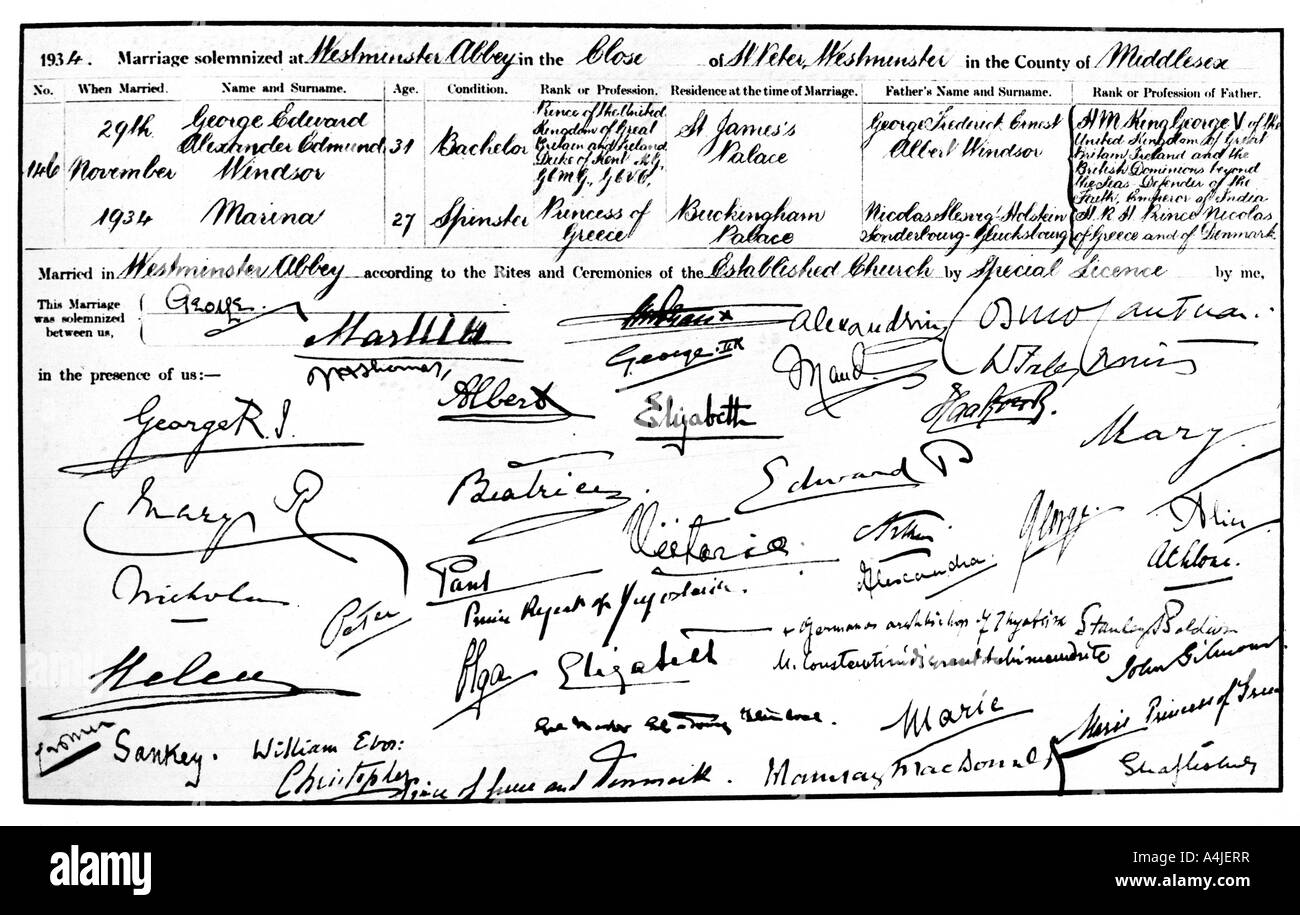 1934. Marriage solemnized at Westminster Abbey in the Close of St Peter, Westminster in the County of Middlesex
No. When Married. Name and Surname. Age. Condition. Rank or Profession. Residence at the time of Marriage. Father's Name and Surname. Rank or Profession of Father.
146 29th November 1934
George Edward Alexander Edmund Windsor
31
Bachelor
Prince of the United Kingdom of Great Britain and Ireland Duke of Kent K.G. G.C.M.G., G.C.V.O.
St James's Palace
George Frederick Ernest Albert Windsor
H M King George V of the United Kingdom of Great Britain Ireland and the British Dominions beyond the Seas Defender of the Faith, Emperor of India
Marina
27
Spinster
Princess of Greece
Buckingham Palace
Nicolas Slesvig-Holstein Sonderbourg-Glucksbourg
H.R.H Prince Nicolas of Greece and of Denmark
Married in Westminster Abbey according to the Rites and Ceremonies of the Established Church by Special Licence by me,
This Marriage was solemnized between us,
George.
Marina
Cosmo Cantuar:
in the presence of us:—
George. II R
Maud.
Albert
Elizabeth
George R.I.
Mary
Mary R
Beatrice.
Edward P
Victoria.
George.
Alice
Nicholas
Paul
Prince Regent of Yugoslavia.
Alexandra
Athlone.
Peter
+ Germanos archbishop of Thyatira
Stanley Baldwin
Helen
Olga
Elisabeth
John Gilmour
Marie
Marie Princess of Greece
Sankey.
William Ebor:
Christopher Prince of Greece and Denmark.
Ramsay MacDonald
Shaftesbury
alamy
Image ID: A4JERR
www.alamy.com